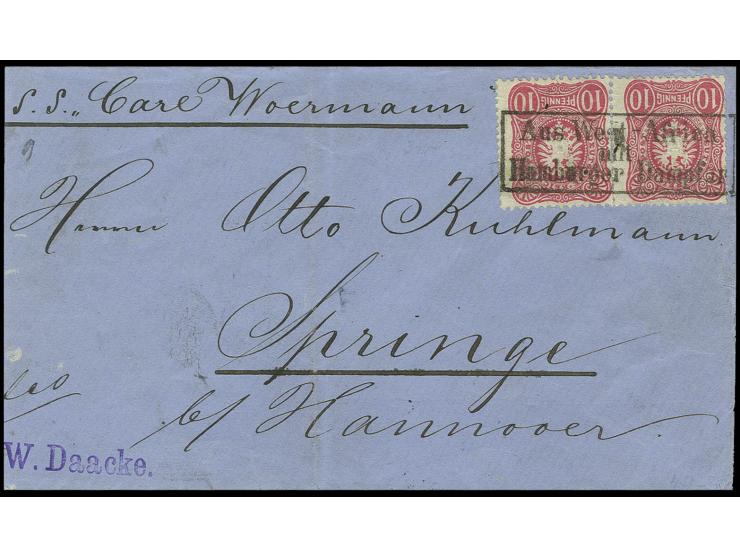 S. S. „Carl Woermann
10 PFENNIG 10
10 PFENNIG 10
Aus West-Afrika
mit
Hamburger Dampfer
Herrn Otto Kuhlmann
Springe
b/ Hannover.
W. Daacke.